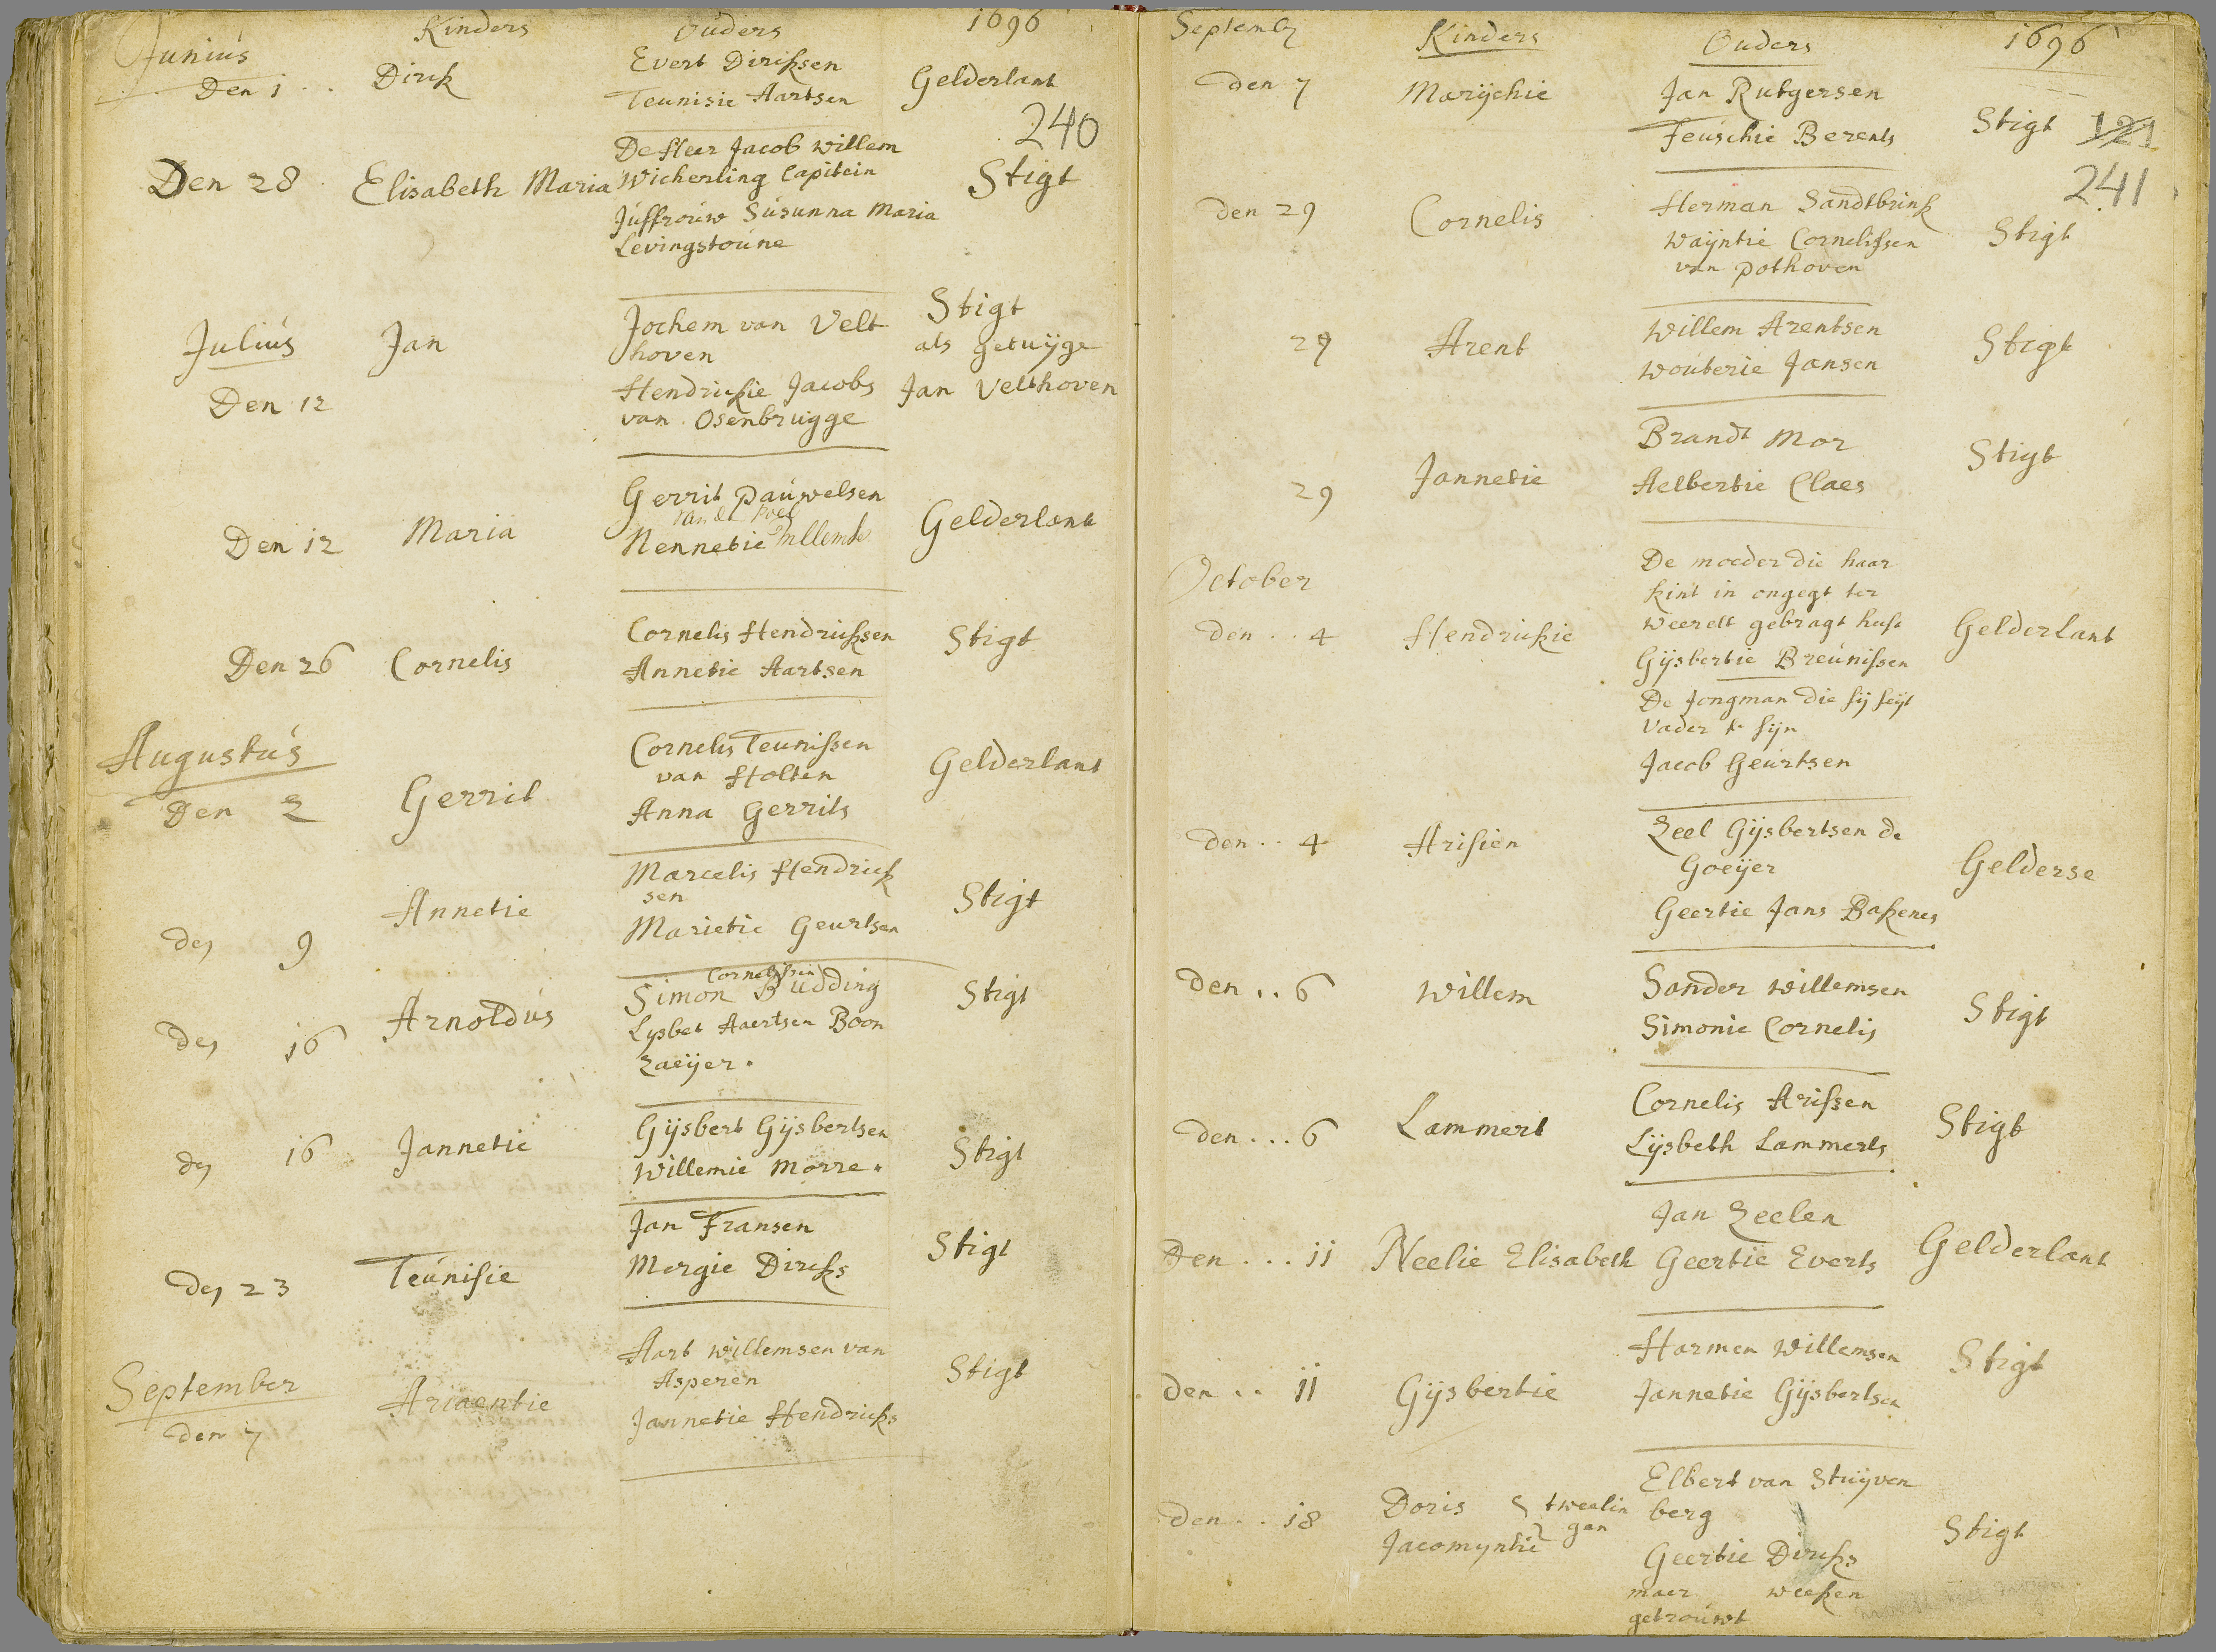 Kinders Ouders 1696
Junius
Den 1 .. Dirck Evert Dircksen Gelderlant
Teunisie Aartsen
240
De Heer Jacob Willem
Den 28 Elisabeth Maria Wicherling Capitein Stigt
Juffrouw Susanna Maria
Levingstoune
Julius Jan Jochem van Velt Stigt
hoven als getuijge
Den 12 Hendrickie Jacobs Jan Velthoven
van Osenbrugge
Gerrit Pauwelsen
van de Poel
Den 12 Maria Nennetie Willems Gelderlant
Den 26 Cornelis Cornelis Hendricksen Stigt
Annetie Aartsen
Augustus Cornelis Teunissen
van Holten Gelderlant
Den 2 Gerrit Anna Gerrits
Marcelis Hendrick
sen
Den 9 Annetie Marietie Geurtsen Stigt
Cornelissen
Den 16 Arnoldus Simon Budding Stigt
Lysbet Aaertsen Boon
zaeijer.
Den 16 Jannetie Gijsbert Gijsbertsen Stigt
Willemie Morre.
Jan Fransen
Den 23 Teunisie Mergie Dircks Stigt
September Aart Willemsen van
Asperen
den 7 Ariaentie Jannetie Hendricks Stigt
Septembr Kinders Ouders 1696
den 7 Marijchie Jan Rutgersen
Teuschie Berents Stigt 121
241
den 29 Cornelis Herman Sandtbrink
Waijntie Cornelissen Stigt
van Pothoven
29 Arent Willem Arentsen Stigt
Wouterie Jansen
29 Jannetie Brandt Mor Stigt
Aelbertie Claes
October De moeder die haar
kint in onegt ter
den .. 4 Hendrickie weerelt gebragt heft Gelderlant
Gijsbertie Breunissen
De Jongman die sij seijt
Vader te sijn
Jacob Geurtsen
den .. 4 Arisien Zeel Gijsbertsen de
Goeijer Gelderse
Geertie Jans Backenes
den .. 6 Willem Sander Willemsen Stigt
Simonie Cornelis
den ... 6 Lammert Cornelis Arissen Stigt
Lijsbeth Lammerts
Jan Zeelen
Den ... 11 Neelie Elisabeth Geertie Everts Gelderlant
den .. 11 Gijsbertie Harmen Willemsen Stigt
Jannetie Gijsbertsen
den .. 18 Doris tweelin Elbert van Stuijven
Jacomyntie gen berg
Geertie Dircks Stigt
maer weeken
getrouwt